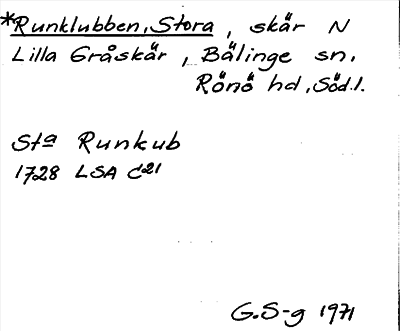 *Runklubben, Stora, skär N
Lilla Gråskär, Bälinge sn.
Rönö hd, Söd.l.
Sta Runkub
1728 LSA C21
G.S-g 1971